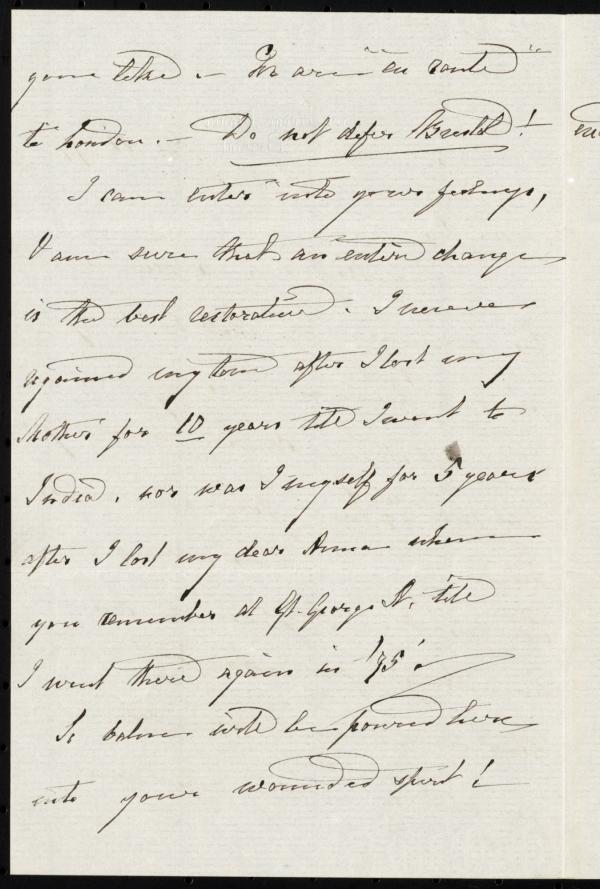 you like. – We are "en route"
to London. – Do not defer Bristol! –
I can enter into your feelings,
& am sure that an entire change
is the best restorative. I never
regained my tone after I lost my
Mother for 10 years till I went to
India, nor was I myself for 5 years
after I lost my dear Anna whom
you remember at Gt. George St, till
I went there again in '75'.
So balm will be poured here
into your wounded spirit!